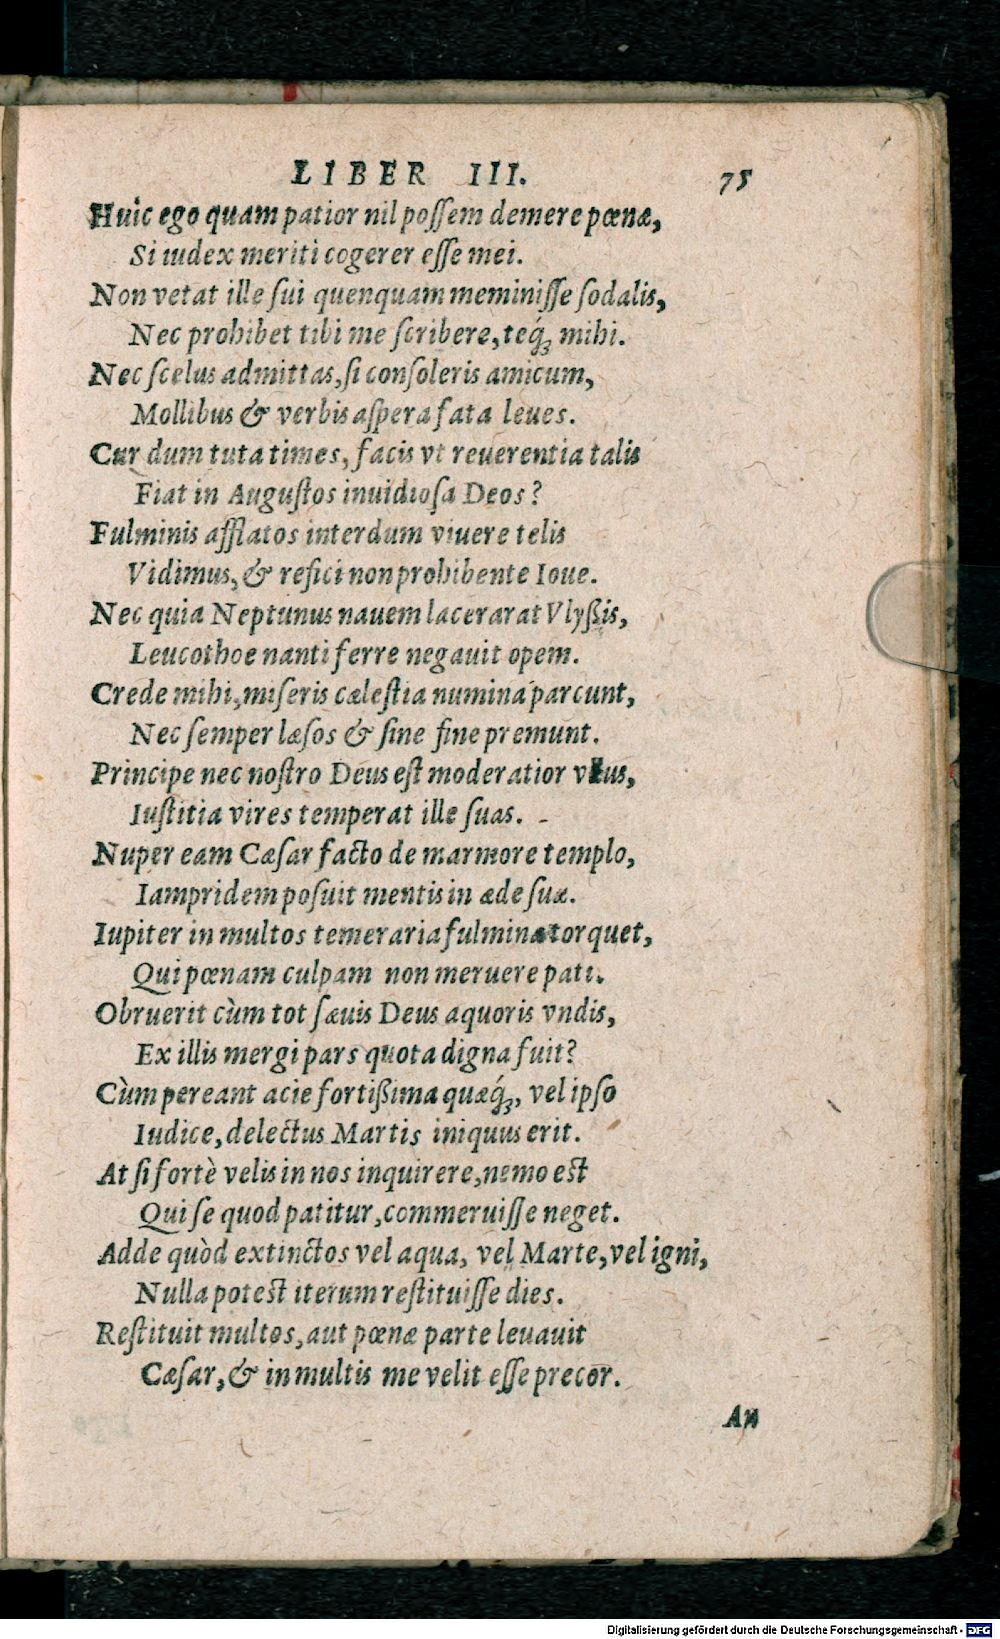 LIBER III. 75
Huic ego quam patior nil poſſem demere pœnæ,
Si iudex meriti cogerer eſſe mei.
Non vetat ille ſui quenquam meminiſſe ſodalis,
Nec prohibet tibi me ſcribere, teq́ꝫ mihi.
Nec ſcelus admittas, ſi conſoleris amicum,
Mollibus & verbis aſpera fata leues.
Cur dum tuta times, facis vt reuerentia talis
Fiat in Auguſtos inuidioſa Deos?
Fulminis afflatos interdum viuere telis
Vidimus, & refici non prohibente Ioue.
Nec quia Neptunus nauem lacerarat Vlyßis,
Leucothoe nanti ferre negauit opem.
Crede mihi, miſeris cæleſtia numina parcunt,
Nec ſemper læſos & ſine fine premunt.
Principe nec noſtro Deus eſt moderatior vllus,
Iuſtitia vires temperat ille ſuas.
Nuper eam Cæſar facto de marmore templo,
Iampridem poſuit mentis in æde ſuæ.
Iupiter in multos temeraria fulmina torquet,
Qui pœnam culpam non meruere pati.
Obruerit cùm tot ſæuis Deus aquoris vndis,
Ex illis mergi pars quota digna fuit?
Cùm pereant acie fortißima quæq́ꝫ, vel ipſo
Iudice, delectus Martis iniquus erit.
At ſi fortè velis in nos inquirere, nemo est
Qui ſe quod patitur, commeruiſſe neget.
Adde quòd extinctos vel aqua, vel Marte, vel igni,
Nulla potest iterum reſtituiſſe dies.
Reſtituit multos, aut pœnæ parte leuauit
Cæſar, & in multis me velit eſſe precor.
An
Digitalisierung gefördert durch die Deutsche Forschungsgemeinschaft - DFG